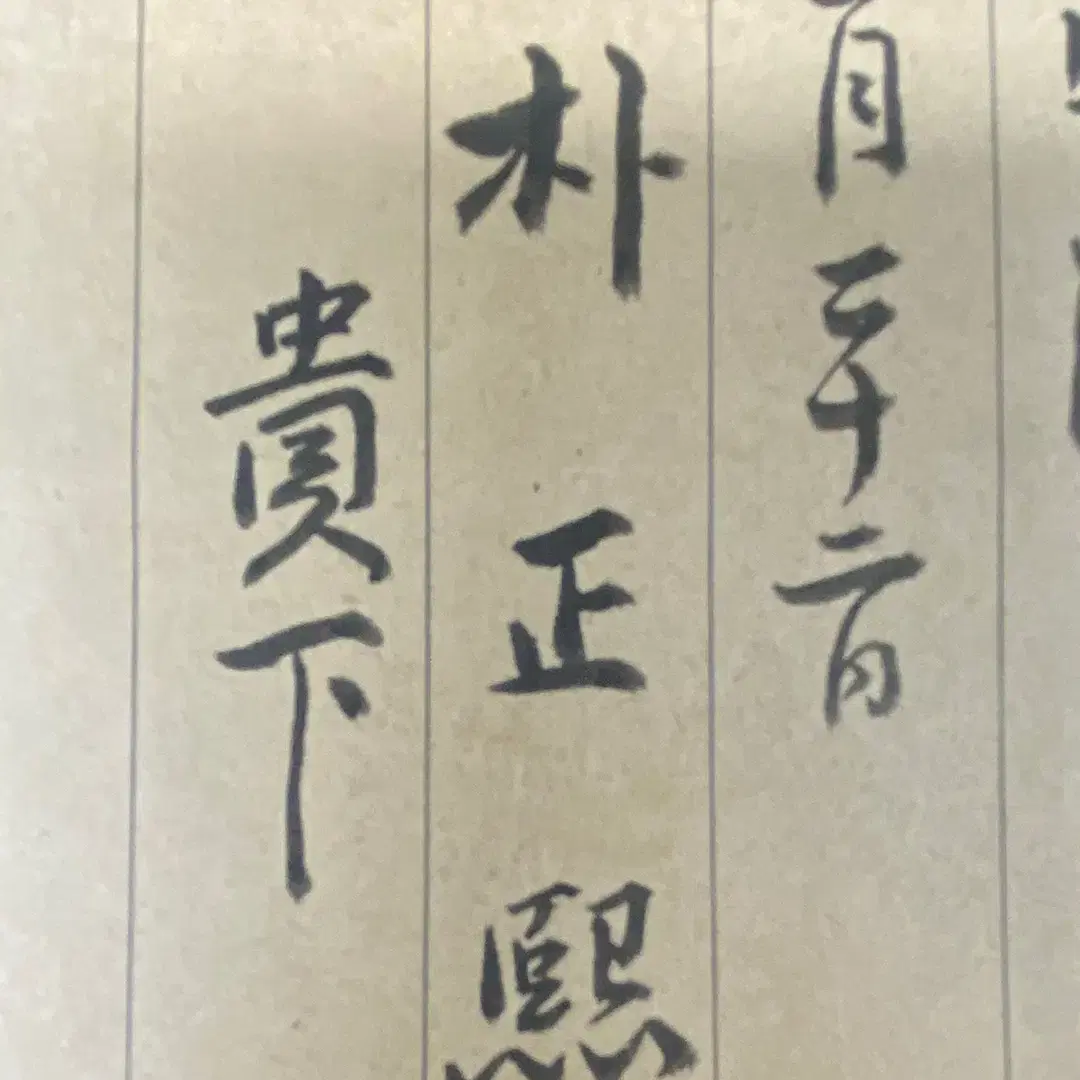 月二十二日
朴正熙
貴下